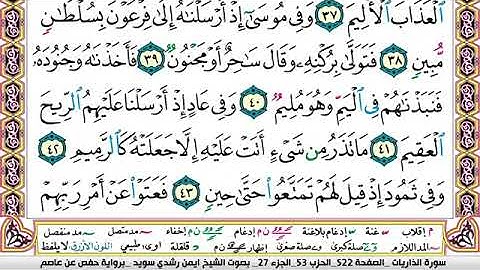 ٱلۡعَذَابَ ٱلۡأَلِيمَ ٣٧ وَفِي مُوسَىٰٓ إِذۡ أَرۡسَلۡنَٰهُ إِلَىٰ فِرۡعَوۡنَ بِسُلۡطَٰنٖ
مُّبِينٖ ٣٨ فَتَوَلَّىٰ بِرُكۡنِهِۦ وَقَالَ سَٰحِرٌ أَوۡ مَجۡنُونٞ ٣٩ فَأَخَذۡنَٰهُ وَجُنُودَهُۥ
فَنَبَذۡنَٰهُمۡ فِي ٱلۡيَمِّ وَهُوَ مُلِيمٞ ٤٠ وَفِي عَادٍ إِذۡ أَرۡسَلۡنَا عَلَيۡهِمُ ٱلرِّيحَ
ٱلۡعَقِيمَ ٤١ مَا تَذَرُ مِن شَيۡءٍ أَتَتۡ عَلَيۡهِ إِلَّا جَعَلَتۡهُ كَٱلرَّمِيمِ ٤٢
وَفِي ثَمُودَ إِذۡ قِيلَ لَهُمۡ تَمَتَّعُواْ حَتَّىٰ حِينٖ ٤٣ فَعَتَوۡاْ عَنۡ أَمۡرِ رَبِّهِمۡ
م إقلاب غنة إدغام بلاغنة إدغام إخفاء مد متصل مد منفصل
المد اللازم صلة كبرى وصلة صغرى إظهار قلقلة طبيعي اللون الأزرق لا يلفظ
سورة الذاريات _الصفحة 522_ الحزب 53_ الجزء 27_ بصوت الشيخ ايمن رشدي سويد _برواية حفص عن عاصم